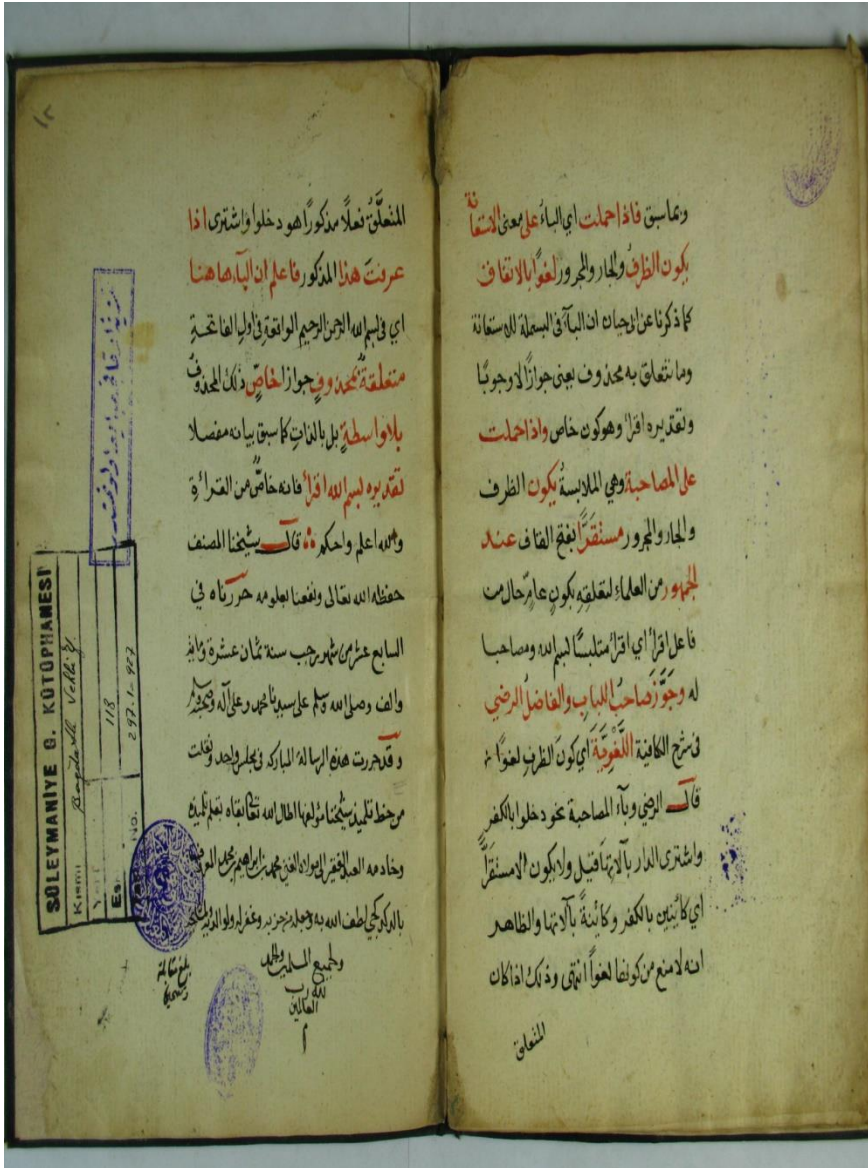 وبماسبق فاذا حملت اي الباءُ على معنى الاستعانة
يكون الظرفُ والجار والمجرور لغوًا بالاتفاف
كما ذكرنا عن ابي حيان ان البآء فى البسملة للاستعانة
وما تتعلق به محذوف يعنى جوازًا لا وجوبًا
وتقديره اقرأ وهو كون خاص واذا حملت
على المصاحبة وهي الملابسةُ يكون الظرف
والجار والمجرور مستقَرًّا بفتح القاف عند
الجمهور من العلماءِ لتعلقه بكونٍ عامٍّ حال من
فاعل اقرأ اي اقرأ متلبسًا ببسم الله ومصاحبا
له وجَوَّزَ صاحبُ اللباب والفاضلُ الرضي
فى شرح الكافية اللَّغْوِيَّةَ اي كونَ الظرفِ لغوًا
قال الرضي وبآء المصاحبة نحو دخلوا بالكفر
واشترى الدار بآلاتها قيل ولا يكون الا مستقرًّا
اي كائنين بالكفر وكائنةً بآلاتها والظاهر
انه لا منع من كونها لغوًا انتهى وذلك اذا كان
المتعلق
١٢
المتعلَّقُ فعلًا مذكورًا هو دخلوا واشترى اذا
عرفتَ هذا المذكور فاعلم ان البآء هاهنا
اي فى بسم الله الرحمن الرحيم الواقعة فى اول الفاتحة
متعلقةٌ بمحذوفٍ جوازا خاصٍّ ذلك المحذوفُ
بلا واسطةٍ بل بالذات كما سبق بيانه مفصلا
تقديره بسم الله اقرأ فانه خاصٌّ من القرائة
والله اعلم واحكم قال شيخنا المصنف
حفظه الله تعالى ونفعنا بعلومه حررناه في
السابع عشر من شهر رجب سنة ثمان عشرة ومائة
والف وصلى الله وسلم على سيدنا محمد وعلى آله وصحبه وسلم
وقد حررت هذه الرسالة المباركه فى مجلس واحد ونقلت
من خط تلميذ شيخنا مؤلفها اطال الله تعالى بقاه بقلم تلميذه
وخادمه العبد الفقير الى مولاه الغنى محمد بن ابراهيم بن محمد
لطف الله به وجعله من حزبه وغفر له ولوالديه
ولجميع المسلمين والحمد
لله رب
العالمين
م
بلغ مقابلة
SÜLEYMANİYE G. KÜTÜPHANESİ
Kısmı Bağdatlı Vehbi
Yeni
Es 118
No. 297.1-927